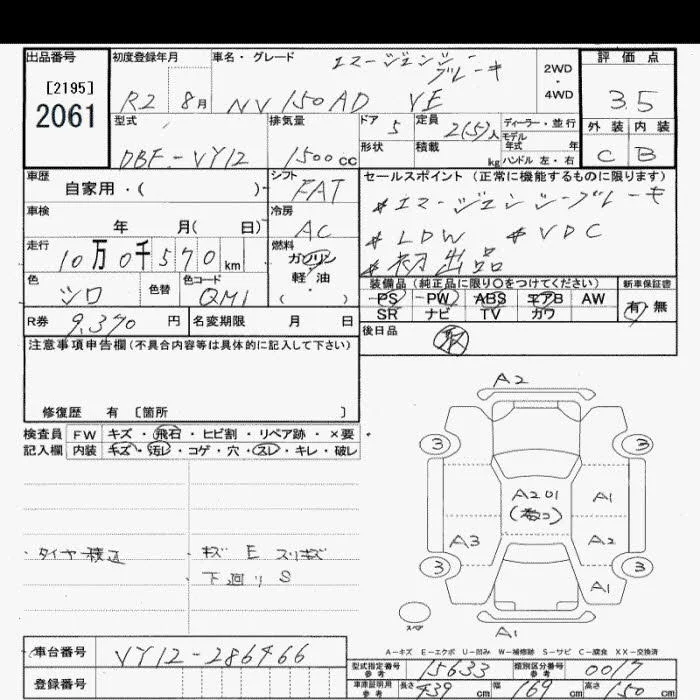 出品番号
[2195]
2061
初度登録年月
R2 8月
車名・グレード
エマージェンシーブレーキ
NV150AD VE
2WD
4WD
評価点
3.5
外装 内装
C B
型式
DBF-VY12
排気量
1500cc
ドア 5
形状
定員 2(5)人
積載 kg
ディーラー・並行
モデル年式 年
ハンドル 左・右
車歴
自家用・( )
シフト
FAT
セールスポイント (正常に機能するものに限ります)
#エマージェンシーブレーキ
#LDW #VDC
#初出品
車検
年 月( 日)
冷房
AC
走行
10万0千570km
燃料
ガソリン
軽・油
( )
色
シロ
色替
色コード
QM1
装備品 (純正品に限り○をつけてください)
PS PW ABS エアB AW
SR ナビ TV カワ
新車保証書
有 無
R券 9,370円
名変期限 月 日
後日品
取
注意事項申告欄(不具合内容等は具体的に記入して下さい)
修復歴 有 [箇所 ]
検査員 FW キズ・飛石・ヒビ割・リペア跡・×要
記入欄 内装 キズ・汚レ・コゲ・穴・スレ・キレ・破レ
・タイヤ積込
・キズ E スリキズ
・下廻り S
A2
3 3
A201
A1
A3
A2
3 3
A1
スペア
A1
A-キズ E-エクボ U-凹み W-補修跡 S-サビ C-腐食 XX-交換済
車台番号 VY12-286466
登録番号
型式指定番号 参考 15633
類別区分番号 参考 0017
車庫証明用 参考 長さ 439cm 幅 169cm 高さ 150cm